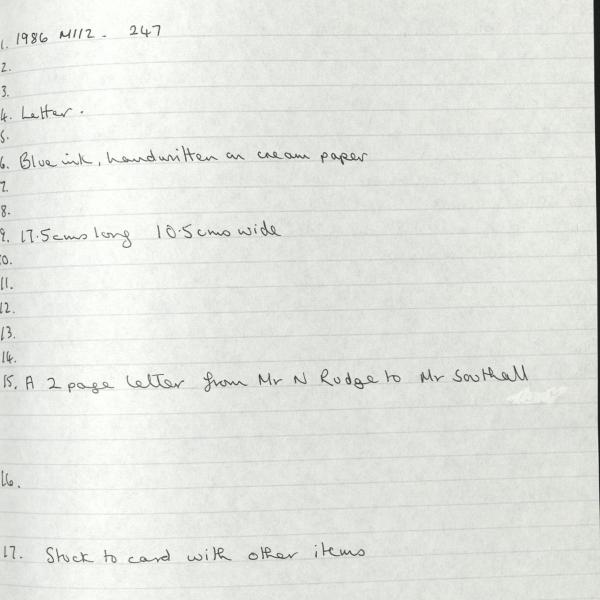 1. 1986 M112 - 247
2.
3.
4. Letter.
5.
6. Blue ink, handwritten on cream paper
7.
8.
9. 17.5cms long 10.5cms wide
10.
11.
12.
13.
14.
15. A 2 page letter from Mr N Rudge to Mr Southall
16.
17. Stuck to card with other items